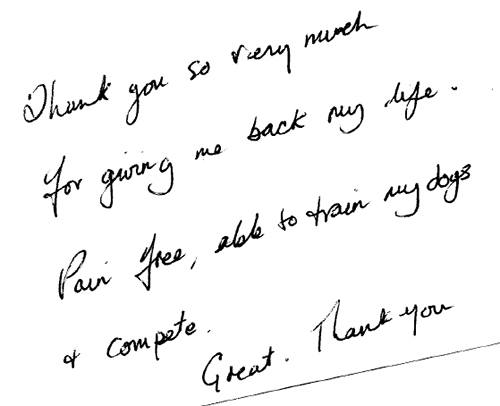 Thank you so very much
for giving me back my life.
Pain free, able to train my dogs
& compete.
Great. Thank you